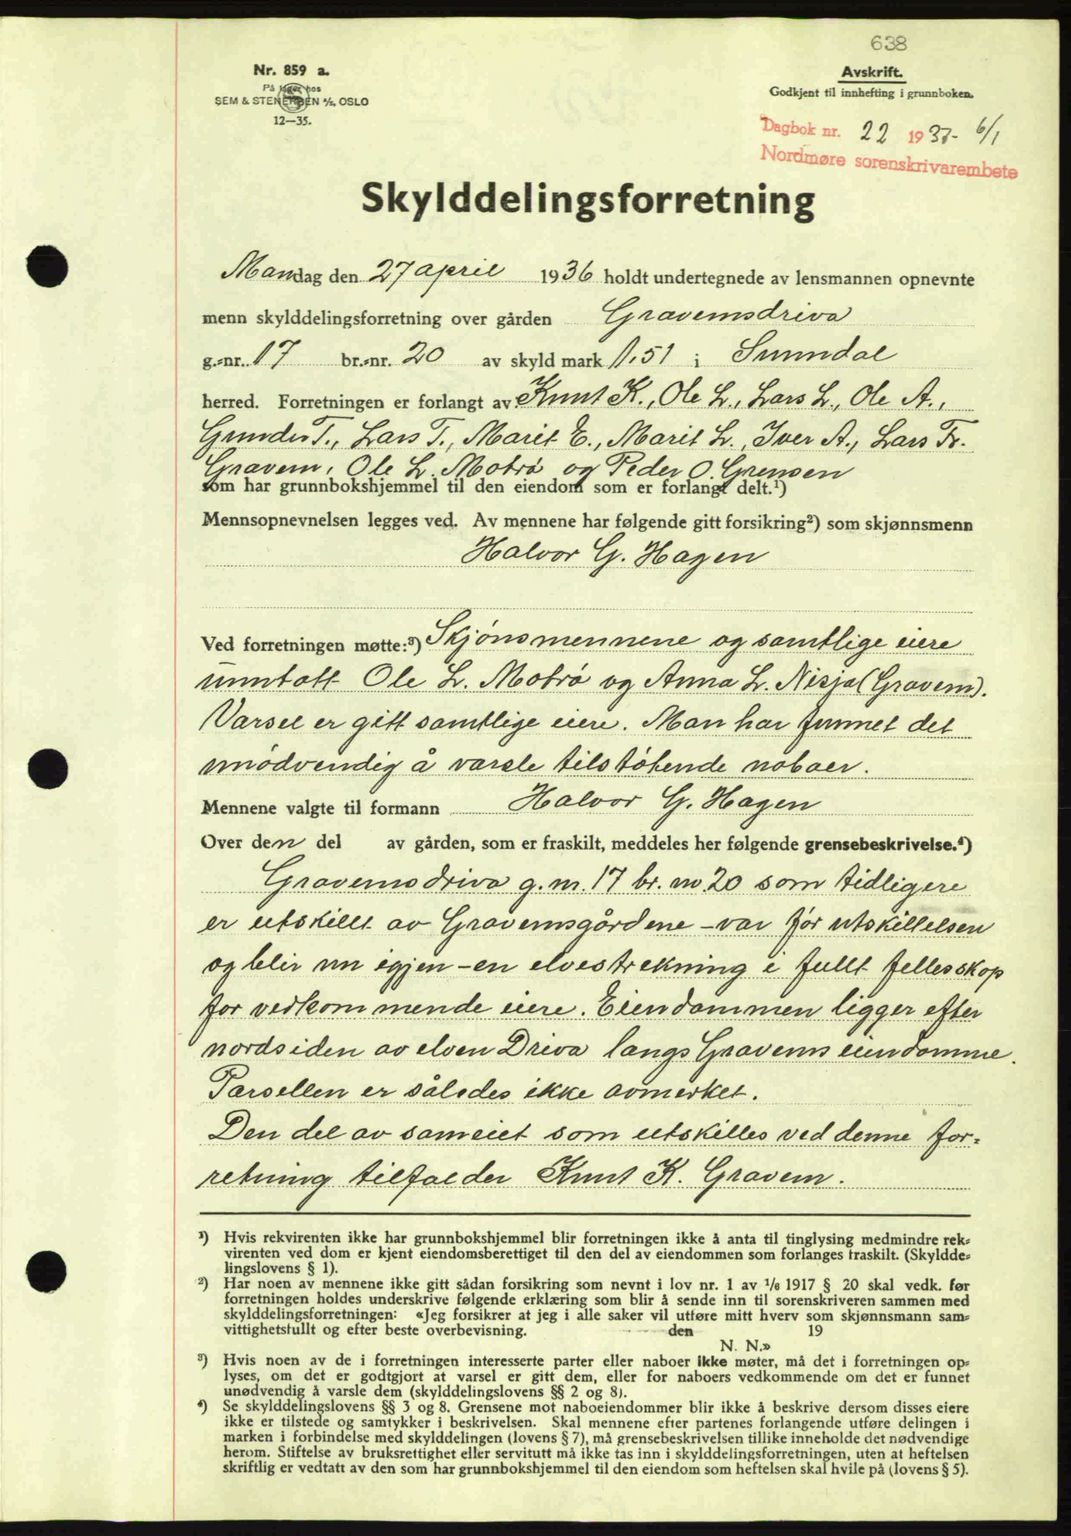 638
Nr. 859 a.
På lager hos
SEM & STENERSEN A/S, OSLO
12—35.
Avskrift.
Godkjent til innhefting i grunnboken.
Dagbok nr. 22 1937 - 6/1
Nordmøre sorenskrivarembete
Skylddelingsforretning
Mandag den 27 april 1936 holdt undertegnede av lensmannen opnevnte
menn skylddelingsforretning over gården Gravemsdriva
g.-nr. 17 br.-nr. 20 av skyld mark 1,51 i Sunndal
herred. Forretningen er forlangt av: Knut K., Ole L., Lars L., Ole A.,
Gunder T., Lars T., Marit E., Marit L., Iver A., Lars Fr.
Gravem, Ole L. Mobrø og Peder O. Grensen
som har grunnbokshjemmel til den eiendom som er forlangt delt.¹)
Mennsopnevnelsen legges ved. Av mennene har følgende gitt forsikring²) som skjønnsmenn
Halvor G. Hagen
Ved forretningen møtte:³) Skjønsmennene og samtlige eiere
unntatt Ole L. Mobrø og Anna L. Nisja (Gravem).
Varsel er gitt samtlige eiere. Man har funnet det
unødvendig å varsle tilstøtende naboer.
Mennene valgte til formann Halvor G. Hagen
Over den del av gården, som er fraskilt, meddeles her følgende grensebeskrivelse.⁴)
Gravemsdriva g.nr. 17 br. nr. 20 som tidligere
er utskillt av Gravemsgårdene - var før utskillelsen
og blir nu igjen - en elvestrekning i fullt fellesskap
for vedkommende eiere. Eiendommen ligger efter
nordsiden av elven Driva langs Gravems eiendomme.
Parsellen er således ikke avmerket.
Den del av sameiet som utskilles ved denne for-
retning tilfalder Knut K. Gravem.
¹) Hvis rekvirenten ikke har grunnbokshjemmel blir forretningen ikke å anta til tinglysing medmindre rek-
virenten ved dom er kjent eiendomsberettiget til den del av eiendommen som forlanges fraskilt. (Skyldde-
lingslovens § 1).
²) Har noen av mennene ikke gitt sådan forsikring som nevnt i lov nr. 1 av 1/6 1917 § 20 skal vedk. før
forretningen holdes underskrive følgende erklæring som blir å sende inn til sorenskriveren sammen med
skylddelingsforretningen: «Jeg forsikrer at jeg i alle saker vil utføre mitt hverv som skjønnsmann sam-
vittighetsfullt og efter beste overbevisning. den 19
N. N.»
³) Hvis noen av de i forretningen interesserte parter eller naboer ikke møter, må det i forretningen op-
lyses, om det er godtgjort at varsel er gitt dem, eller for naboers vedkommende om det er funnet
unødvendig å varsle dem (skylddelingslovens §§ 2 og 8).
⁴) Se skylddelingslovens §§ 3 og 8. Grensene mot naboeiendommer blir ikke å beskrive dersom disses eiere
ikke er tilstede og samtykker i beskrivelsen. Skal mennene efter partenes forlangende utføre delingen i
marken i forbindelse med skylddelingen (lovens § 7), må grensebeskrivelsen tillike inneholde det nødvendige
herom. Stiftelse av bruksrettighet eller servitutt må ikke tas inn i skylddelingsforretningen, uten at heftelsen
skriftlig er vedtatt av den som har grunnbokshjemmel til den eiendom som heftelsen skal hvile på (lovens § 5).